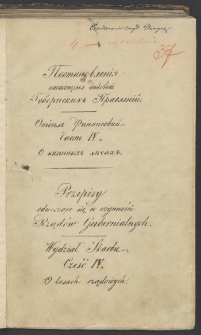 Постановленія
касающіяся дѣйствій
Губернскихъ Правленій.
Отдѣлъ Финансовый
Часть IV.
О казенныхъ лѣсахъ.
Przepisy
odnoszące się do czynności
Rządów Gubernialnych.
Wydział Skarbu
Część IV.
O lasach rządowych.